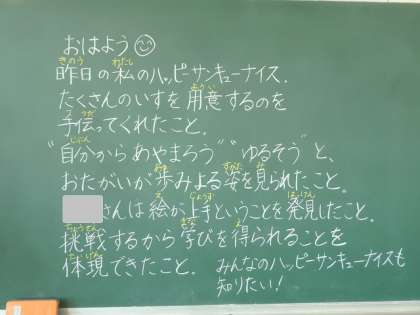 おはよう☺
昨日の私のハッピーサンキューナイス.
たくさんのいすを用意するのを
手伝ってくれたこと.
"自分からあやまろう""ゆるそう"と、
おたがいが歩みよる姿を見られたこと。
さんは絵が上手ということを発見したこと.
挑戦するから学びを得られることを
体現できたこと.
みんなのハッピーサンキューナイスも
知りたい!